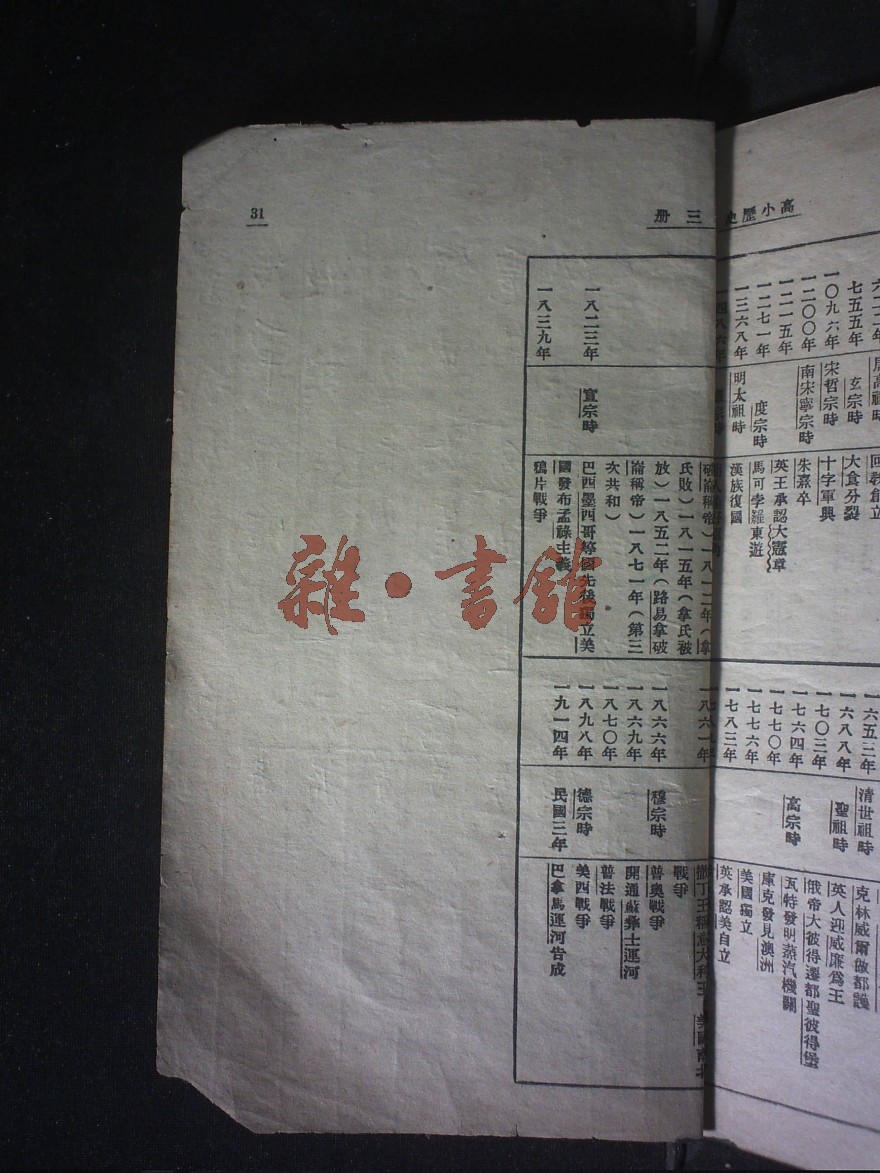 高小歷史
三册
31
七五五年
玄宗時
大食分裂
一〇九六年
宋哲宗時
十字軍興
一二〇〇年
南宋寧宗時
朱熹卒
一二一五年
英王承認大憲章
一二七一年
度宗時
馬可孛羅東遊
一三六八年
明太祖時
漢族復國
破崙稱帝)一八一二年(拿
氏敗)一八一五年(拿氏被
放)一八五二年(路易拿破
崙稱帝)一八七一年(第三
次共和)
一八二三年
宣宗時
巴西墨西哥等國先後獨立美
國發布孟祿主義
一八三九年
鴉片戰爭
一六五三年
清世祖時
克林威爾做都護
一六八八年
聖祖時
英人迎威廉爲王
一七〇三年
俄帝大彼得遷都聖彼得堡
一七六四年
高宗時
瓦特發明蒸汽機關
一七七〇年
庫克發見澳洲
一七七六年
美國獨立
一七八三年
英承認美自立
一八六一年
撒丁王稱意大利王 美國南北
戰爭
一八六六年
穆宗時
普奧戰爭
一八六九年
開通蘇彝士運河
一八七〇年
普法戰爭
一八九八年
德宗時
美西戰爭
一九一四年
民國三年
巴拿馬運河告成
雜·書館